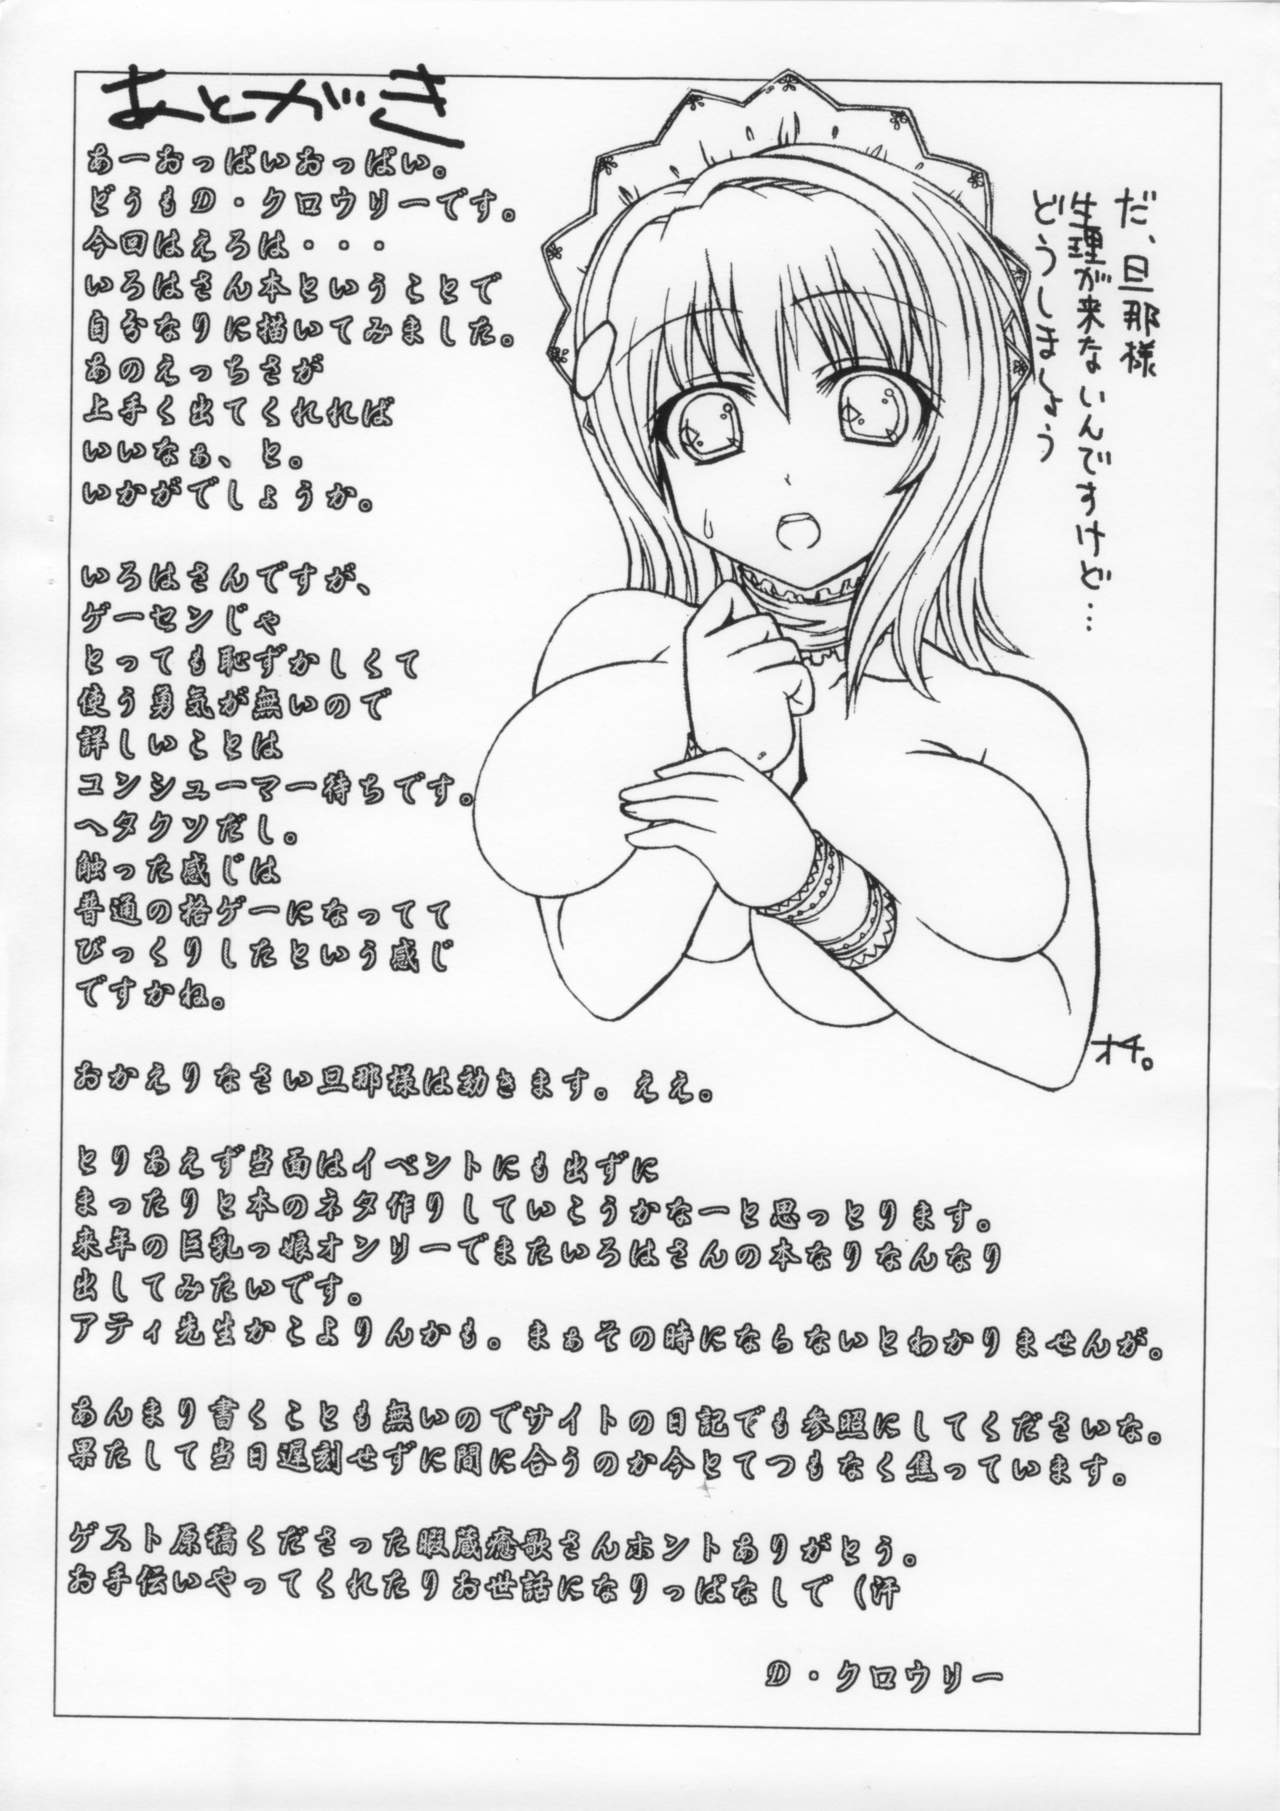 あとがき
あーおっぱいおっぱい。
どうもD・クロウリーです。
今回はえろは・・・
いろはさん本ということで
自分なりに描いてみました。
あのえっちさが
上手く出てくれれば
いいなぁ、と。
いかがでしょうか。
いろはさんですが、
ゲーセンじゃ
とっても恥ずかしくて
使う勇気が無いので
詳しいことは
コンシューマー待ちです。
ヘタクソだし。
触った感じは
普通の格ゲーになってて
びっくりしたという感じ
ですかね。
だ、旦那様
生理が来ないんですけど…
どうしましょう
オチ。
おかえりなさい旦那様は効きます。ええ。
とりあえず当面はイベントにも出ずに
まったりと本のネタ作りしていこうかなーと思っとります。
来年の巨乳っ娘オンリーでまたいろはさんの本なりなんなり
出してみたいです。
アティ先生かこよりんかも。まぁその時にならないとわかりませんが。
あんまり書くことも無いのでサイトの日記でも参照にしてくださいな。
果たして当日遅刻せずに間に合うのか今とてつもなく焦っています。
ゲスト原稿くださった暇蔵癒歌さんホントありがとう。
お手伝いやってくれたりお世話になりっぱなしで（汗
D・クロウリー